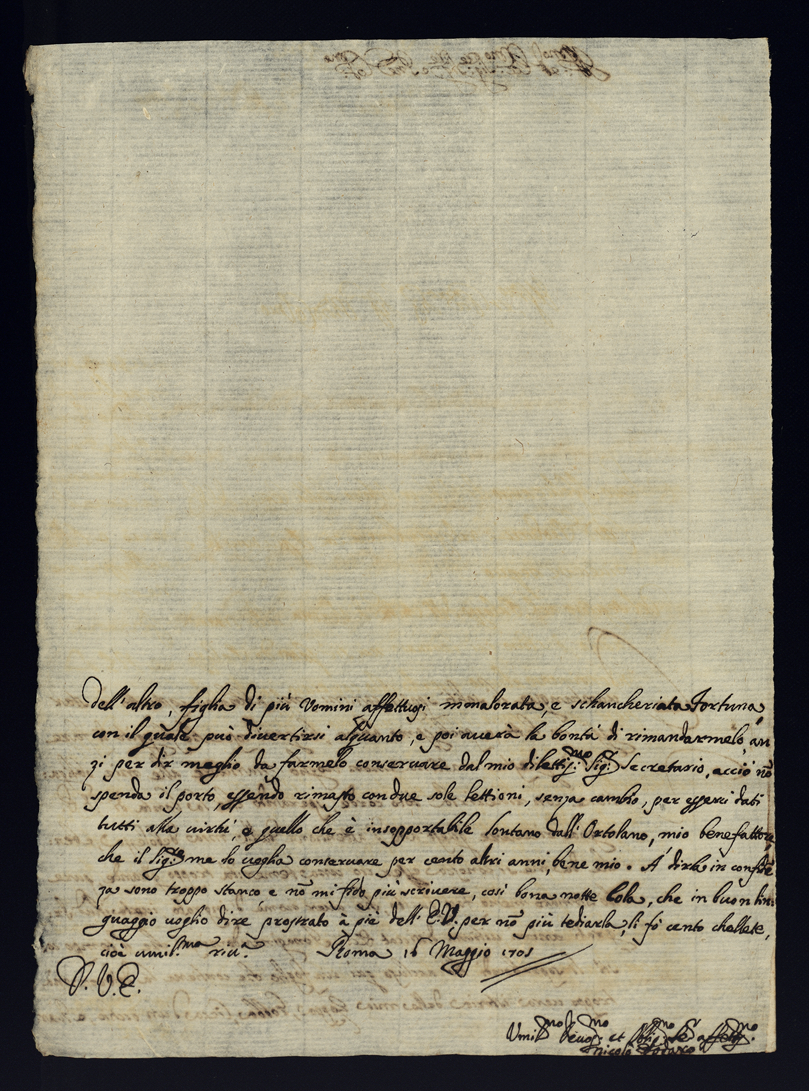 dell'altro, figlia di più Vomini affettuosi mmalorata e schancheriata Fortuna
con il quale può divertirsi alquanto, e poi averà la bontà di rimandarmelo, an
zi per dir meglio da farmelo conservare dal mio dilettiss.mo Sig.r Secretario, acciò nõ
spenda il porto, essendo rimasto con due sole lettioni, senza cambio, per essersi dati
tutti alla virtù, e quello che è insopportabile lontano dall'Ortolano, mio benefattore,
che il Sig.re me lo voglia conservare per cento altri anni, bene mio. A' dirla in confidẽ
za sono troppo stanco, e nõ mi fido più scrivere, così bona notte Cola, che in buon lin
guaggio voglio dire, prostrato à piè dell'E.V. per nõ più tediarla, li fò cento chellete,
cioè umil.ma riv.a Roma 16 Maggio 1701
D. V. E.
Umil.mo Devot.mo et Oblig.mo Se.r affett.mo
Nicolò